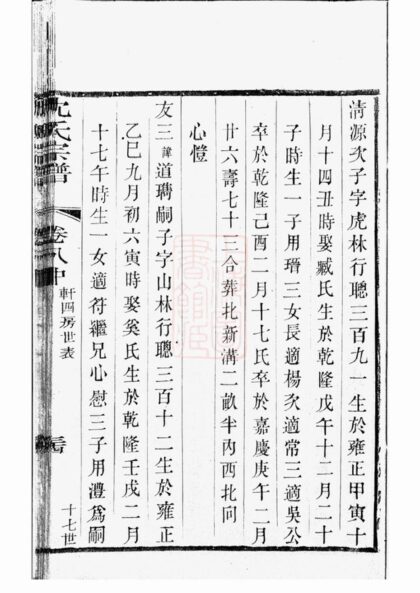 清源次子字虎林行聰三百九一生於雍正甲寅十
月十四丑時娶臧氏生於乾隆戊午十二月二十
子時生一子用瑨三女長適楊次適常三適吳公
卒於乾隆己酉二月十七氏卒於嘉慶庚午二月
廿六壽七十三合葬北新溝二畝半內西北向
心愷
友三諱道瑀嗣子字山林行聰三百十二生於雍正
乙巳九月初六寅時娶奚氏生於乾隆壬戌二月
十七午時生一女適符繼兄心慰三子用灃爲嗣
沈氏宗譜
卷八中
軒四房世表
十七世